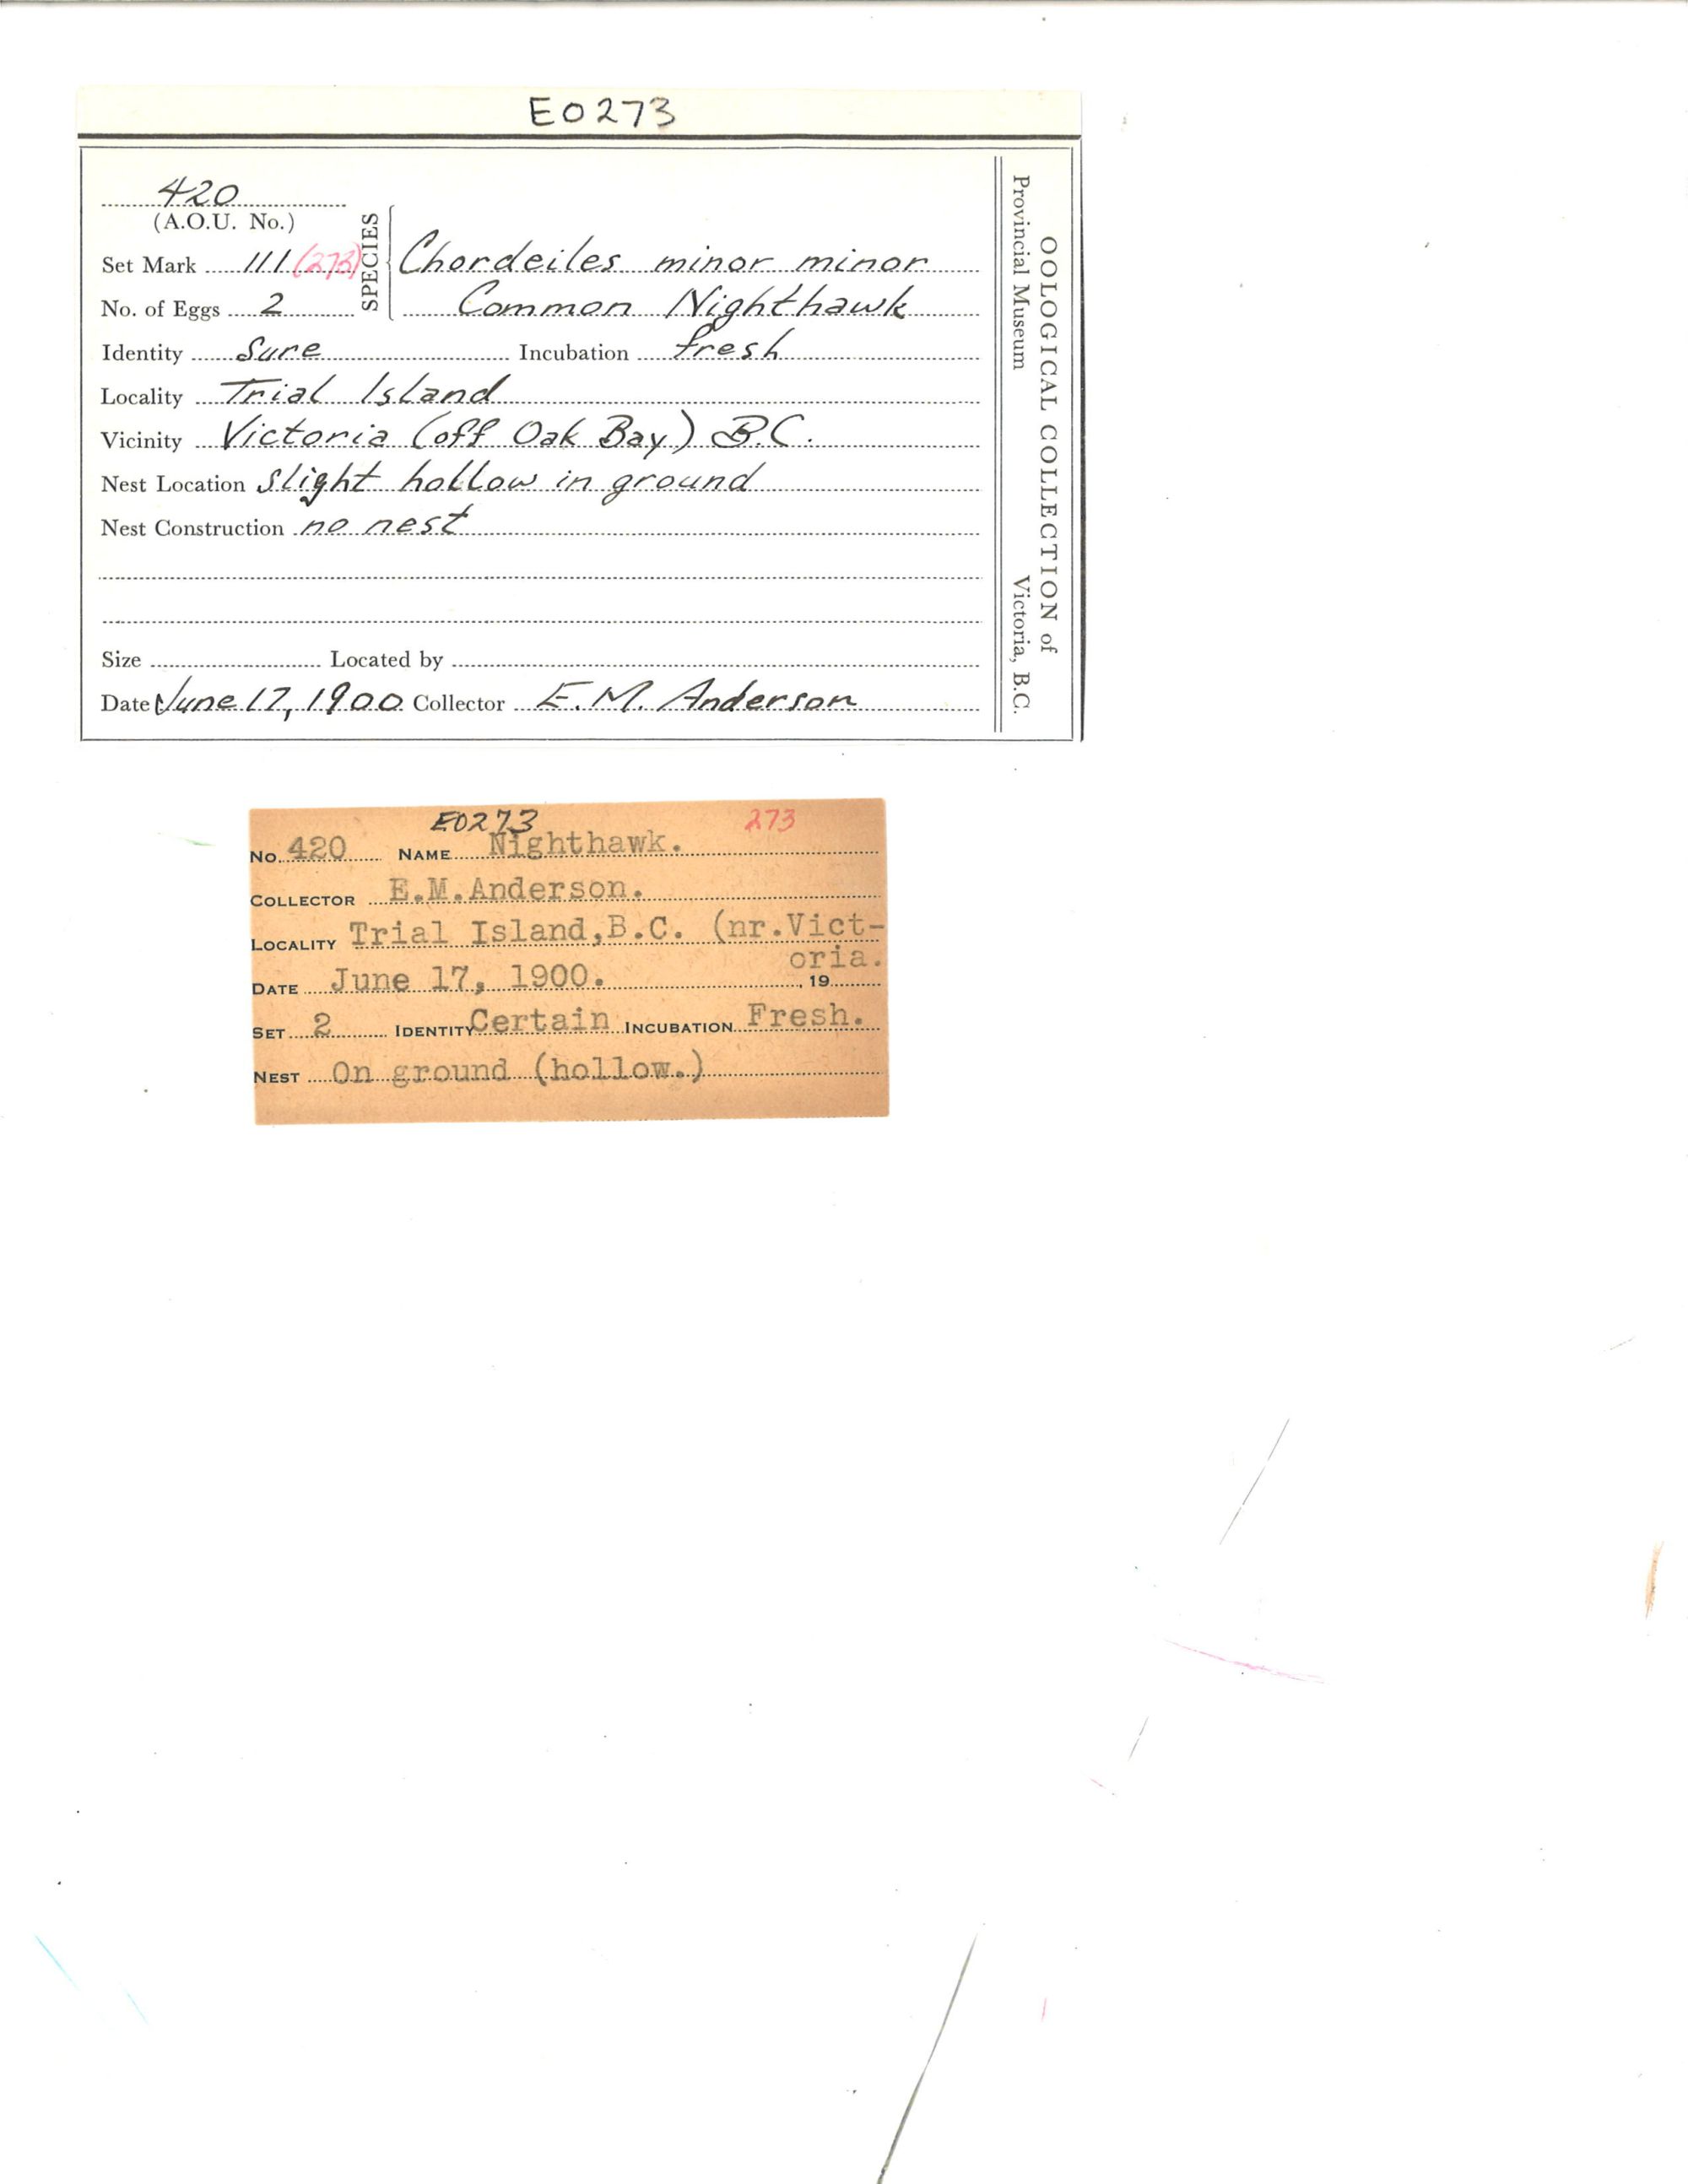 E0273
420
(A.O.U. No.)
SPECIES
Set Mark 111 (273) Chordeiles minor minor
No. of Eggs 2 Common Nighthawk
Identity Sure Incubation fresh
Locality Trial Island
Vicinity Victoria (off Oak Bay) B.C.
Nest Location Slight hollow in ground
Nest Construction no nest
Size Located by
Date June 17, 1900 Collector E.M. Anderson
OOLOGICAL COLLECTION of
Provincial Museum Victoria, B.C.
E0273 273
No. 420 NAME Nighthawk.
COLLECTOR E.M.Anderson.
LOCALITY Trial Island,B.C. (nr.Vict-
oria.
DATE June 17, 1900. , 19
SET 2 IDENTITY Certain INCUBATION Fresh.
NEST On ground (hollow.)